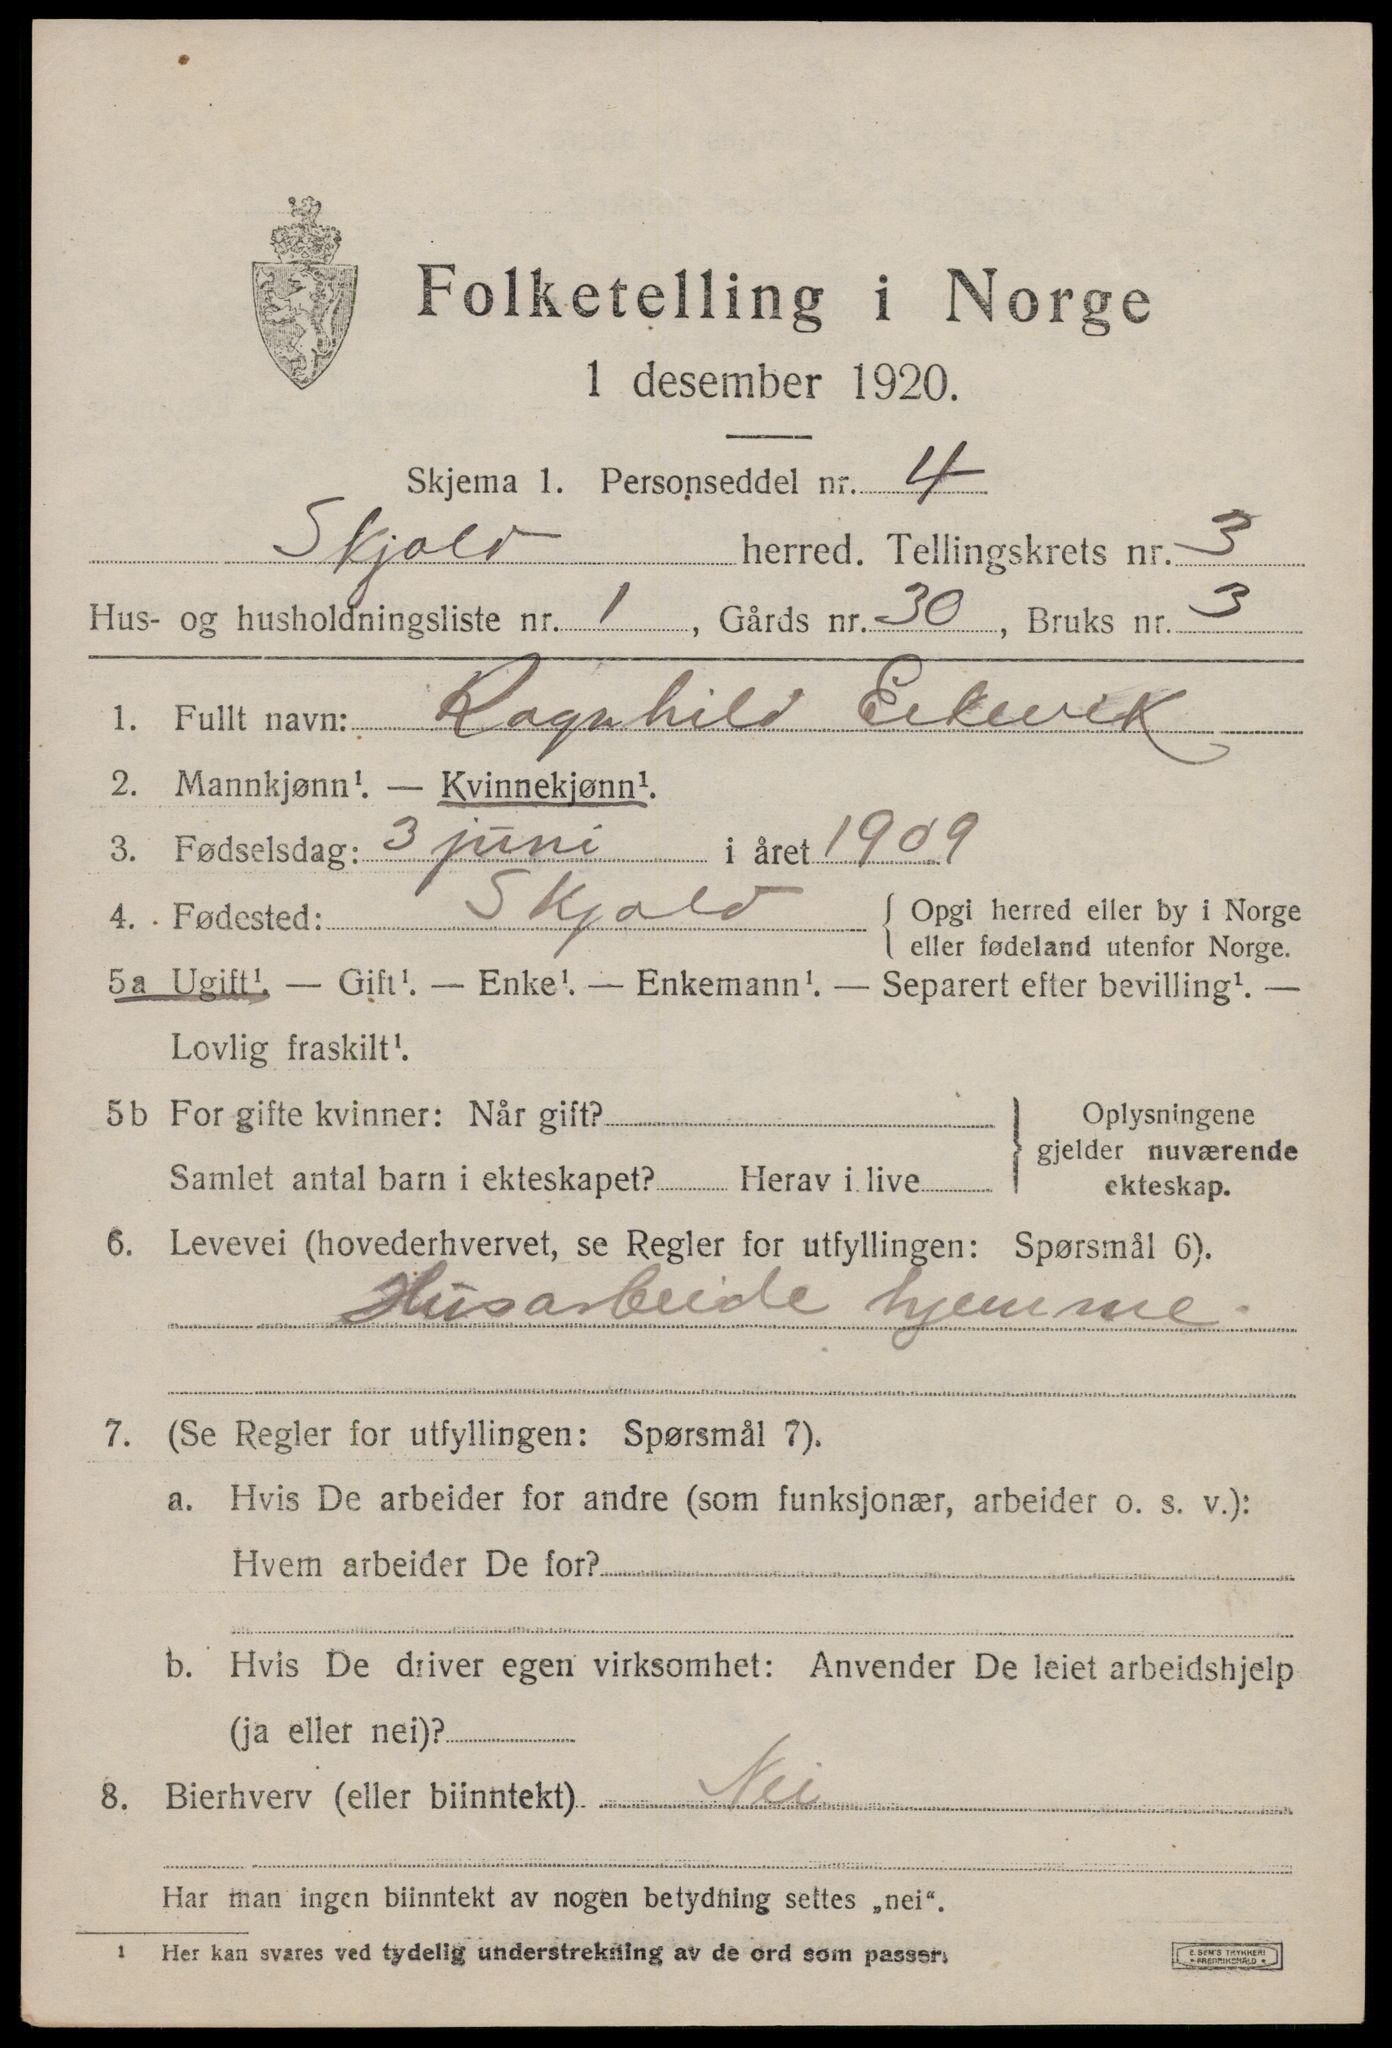 Folketelling i Norge
1 desember 1920.
Skjema 1. Personseddel nr. 4
Skjold herred. Tellingskrets nr. 3
Hus- og husholdningsliste nr. 1, Gårds nr. 30, Bruks nr. 3
1. Fullt navn: Ragnhild
2. Mannkjønn¹. — Kvinnekjønn¹.
3. Fødselsdag: 3 juni i året 1909
4. Fødested: Skjold { Opgi herred eller by i Norge
eller fødeland utenfor Norge.
5a Ugift¹. — Gift¹. — Enke¹. — Enkemann¹. — Separert efter bevilling¹. —
Lovlig fraskilt¹.
5b For gifte kvinner: Når gift? } Oplysningene
gjelder nuværende
Samlet antal barn i ekteskapet? Herav i live ekteskap.
6. Levevei (hovederhvervet, se Regler for utfyllingen: Spørsmål 6).
Husarbeide hjemme.
7. (Se Regler for utfyllingen: Spørsmål 7).
a. Hvis De arbeider for andre (som funksjonær, arbeider o. s. v.):
Hvem arbeider De for?
b. Hvis De driver egen virksomhet: Anvender De leiet arbeidshjelp
(ja eller nei)?
8. Bierhverv (eller biinntekt) Nei
Har man ingen biinntekt av nogen betydning settes „nei".
1 Her kan svares ved tydelig understrekning av de ord som passer.
E. SEM'S TRYKKERI
FREDRIKSHALD